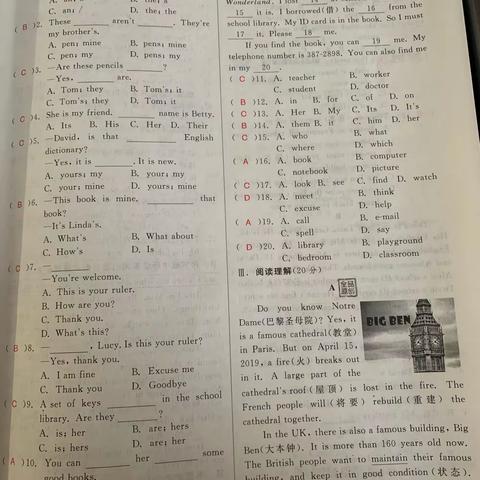 C. an; /    D. the; the
( B )2. These ______ aren't ______. They're
my brother's.
A. pen; mine    B. pens; mine
C. pen; my    D. pens; my
( C )3. —Are these pencils ______?
—Yes, ______ are.
A. Tom; they    B. Tom's; it
C. Tom's; they    D. Tom; it
( C )4. She is my friend, ______ name is Betty.
A. Its    B. His    C. Her    D. Their
( C )5. —David, is that ______ English
dictionary?
—Yes, it is ______. It is new.
A. yours; my    B. your; my
C. your; mine    D. yours; mine
( B )6. —This book is mine, ______ that
book?
—It's Linda's.
A. What's    B. What about
C. How's    D. Is
( C )7. —______
—You're welcome.
A. This is your ruler.
B. How are you?
C. Thank you.
D. What's this?
( B )8. —______, Lucy, Is this your ruler?
—Yes, thank you.
A. I am fine    B. Excuse me
C. Thank you    D. Goodbye
( C )9. A set of keys ______ in the school
library. Are they ______?
A. is; her    B. are; hers
C. is; hers    D. are; her
( A )10. You can ______ her ______ some
good books.
Wonderland. I lost 14
15 it is. I borrowed(借) the 16 from the
school library. My ID card is in the book. So I must
17 it. Please 18 me.
If you find the book, you can 19 me. My
telephone number is 387-2898. You can also find me
in my 20 .
( C )11. A. teacher    B. worker
C. student    D. doctor
( B )12. A. in    B. for    C. of    D. on
( C )13. A. Her    B. My    C. Its    D. It's
( B )14. A. them    B. it    C. him    D. her
( C )15. A. who    B. what
C. where    D. which
( A )16. A. book    B. computer
C. notebook    D. picture
( C )17. A. look    B. see    C. find    D. watch
( D )18. A. meet    B. think
C. excuse    D. help
( A )19. A. call    B. e-mail
C. spell    D. say
( D )20. A. library    B. playground
C. bedroom    D. classroom
Ⅲ. 阅读理解(20分)
A
Do you know Notre
Dame(巴黎圣母院)? Yes, it
is a famous cathedral(教堂)
in Paris. But on April 15,
2019, a fire(火) breaks out
in it. A large part of the
BIG BEN
cathedral's roof(屋顶) is lost in the fire. The
French people will(将要) rebuild(重建) the
cathedral together.
In the UK, there is also a famous building, Big
Ben(大本钟). It is more than 160 years old now.
The British people want to maintain their famous
building, and keep it in good condition(状态).